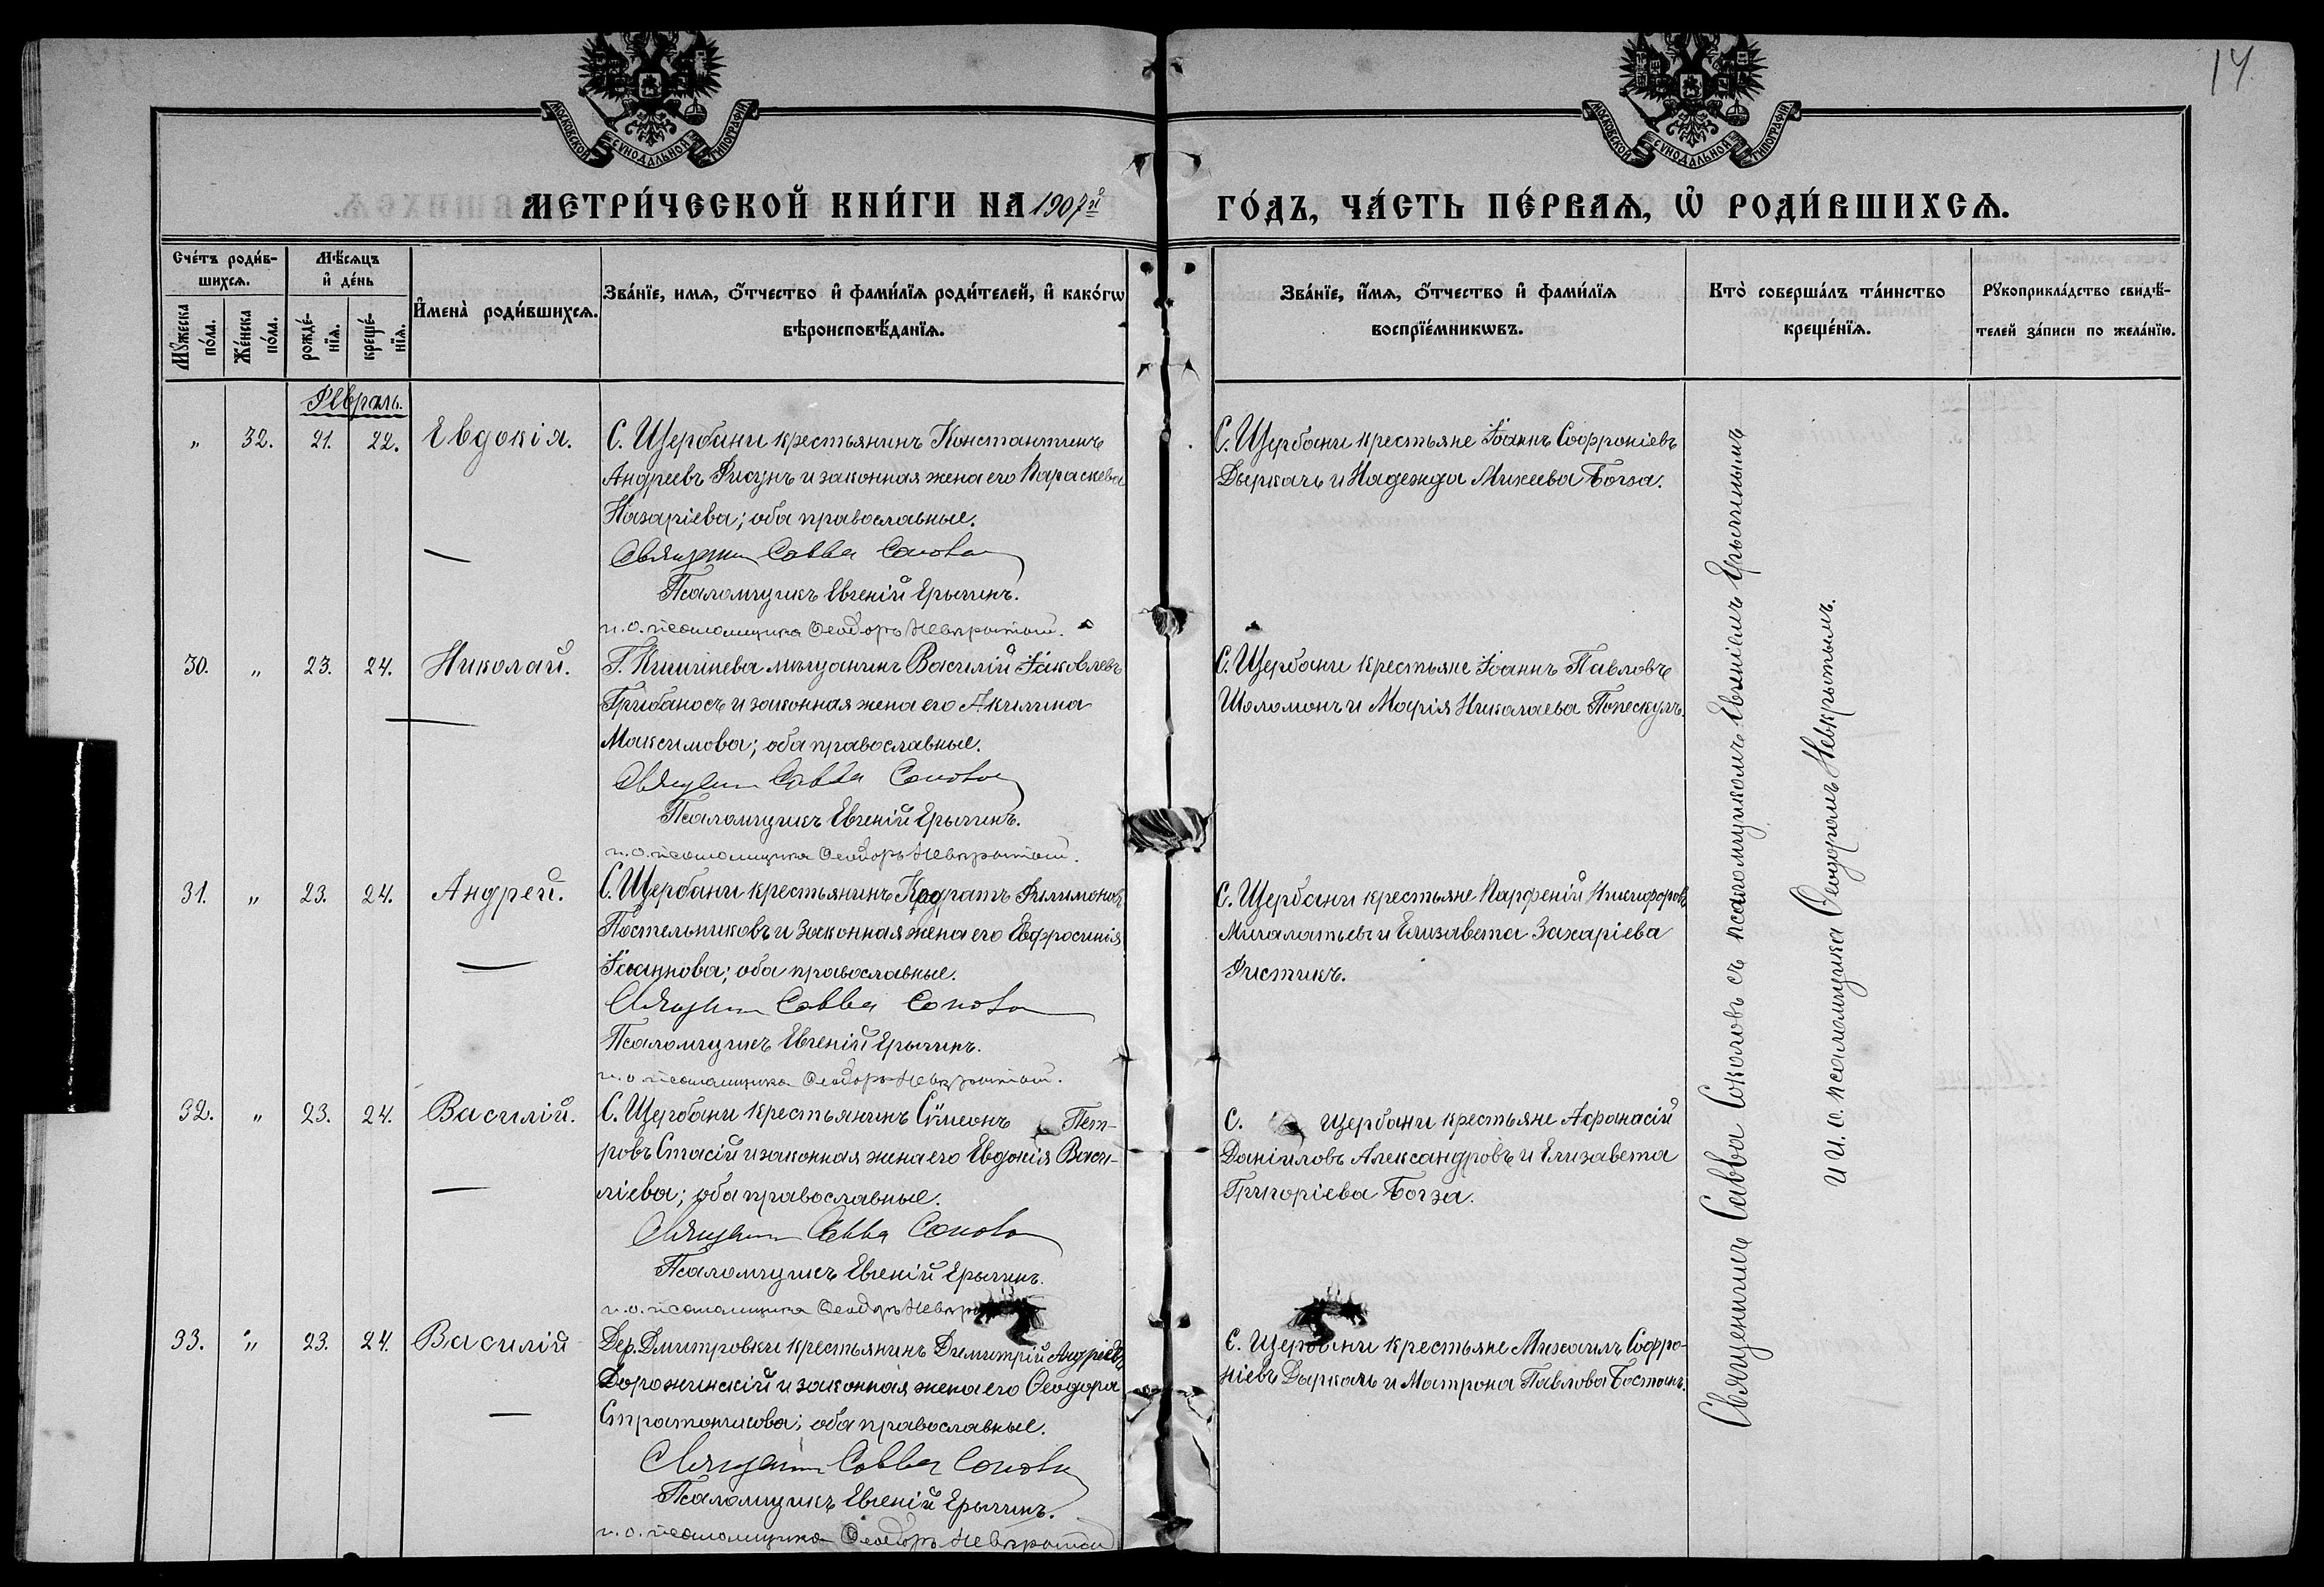 14
МОСКОВСКОЙ СѴНОДАЛЬНОЙ ТИПОГРАФІИ
МОСКОВСКОЙ СѴНОДАЛЬНОЙ ТИПОГРАФІИ
МЕТРИ́ЧЕСКОЙ КНИ́ГИ НА 1907й
ГО́ДЪ, ЧА́СТЬ ПЕ́РВАѦ, Ѽ РОДИ́ВШИХСѦ.
Сче́тъ роди́в-
шихсѧ.
Мꙋжеска по́ла.
Же́нска по́ла.
Мѣ́сѧцъ
и҆ де́нь
рожде́-
нїѧ.
креще́-
нїѧ.
И҆мена̀ роди́вшихсѧ.
Зва́нїе, имѧ, ѻ҆́тчество и҆ фами́лїѧ роди́телей, и҆ како́гѡ
вѣроисповѣ́данїѧ.
Зва́нїе, и҆́мѧ, ѻ҆́тчество и҆ фами́лїѧ
воспрїе́мникѡвъ.
Кто̀ соверша́лъ та́инство
креще́нїѧ.
Рꙋкоприкла́дство свидѣ́-
телей за́писи по жела́нїю.
Февраль.
„ 32. 21. 22. Евдокія.
С. Щербани крестьянинъ Константинъ
Андреевъ Фисунъ и законная жена его Параскева
Назаріева; оба православные.
Священник Савва Соколов
Псаломщикъ Евгеній Ерыгинъ.
и.о. псаломщика Ѳеодоръ Невкрытый.
С. Щербани крестьяне Іоаннъ Софроніевъ
Дыркачъ и Надежда Михеева Богза.
30. „ 23. 24. Николай.
Г. Кишинева мѣщанинъ Василій Іаковлевъ
Грибаносъ и законная жена его Акилина
Максимова; оба православные.
Священник Савва Соколов
Псаломщикъ Евгеній Ерыгинъ.
и.о. псаломщика Ѳеодоръ Невкрытый.
С. Щербани крестьяне Іоаннъ Павловъ
Шоломонъ и Марія Николаева Попескулъ.
31. „ 23. 24. Андрей.
С. Щербани крестьянинъ Кодратъ Филимоновъ
Постельниковъ и законная жена его Евфросинія
Іоаннова; оба православные.
Священник Савва Соколов
Псаломщикъ Евгеній Ерыгинъ.
и.о псаломщика Ѳеодоръ Невкрытый.
С. Щербани крестьяне Парфеній Никифоровъ
Михалатьевъ и Елизавета Захаріева
Фистикъ.
32. „ 23. 24. Василій.
С. Щербани крестьянинъ Сѵмеонъ Пет-
ровъ Стасій и законная жена его Евдокія Васи-
ліева; оба православные.
Священник Савва Соколов
Псаломщикъ Евгеній Ерыгинъ.
и.о. псаломщика Ѳеодоръ
С. Щербани крестьяне Афанасій
Даніиловъ Александровъ и Елизавета
Григоріева Богза.
33. „ 23. 24. Василій
Дер. Дмитровки крестьянинъ Димитрій Андреевъ
Дорожинскій и законная жена его Ѳеодора
Стратоникова; оба православные.
Священник Савва Соколов
Псаломщикъ Евгеній Ерыгинъ.
и.о. псаломщика Ѳеодоръ Невкрытый
С. Щербани крестьяне Михаилъ Софро-
ніевъ Дыркачъ и Матрона Павлова Бостанъ.
Священникъ Савва Соколовъ съ псаломщикомъ Евгеніемъ Ерыгинымъ
и И. о. псаломщика Ѳеодоромъ Невкрытымъ.